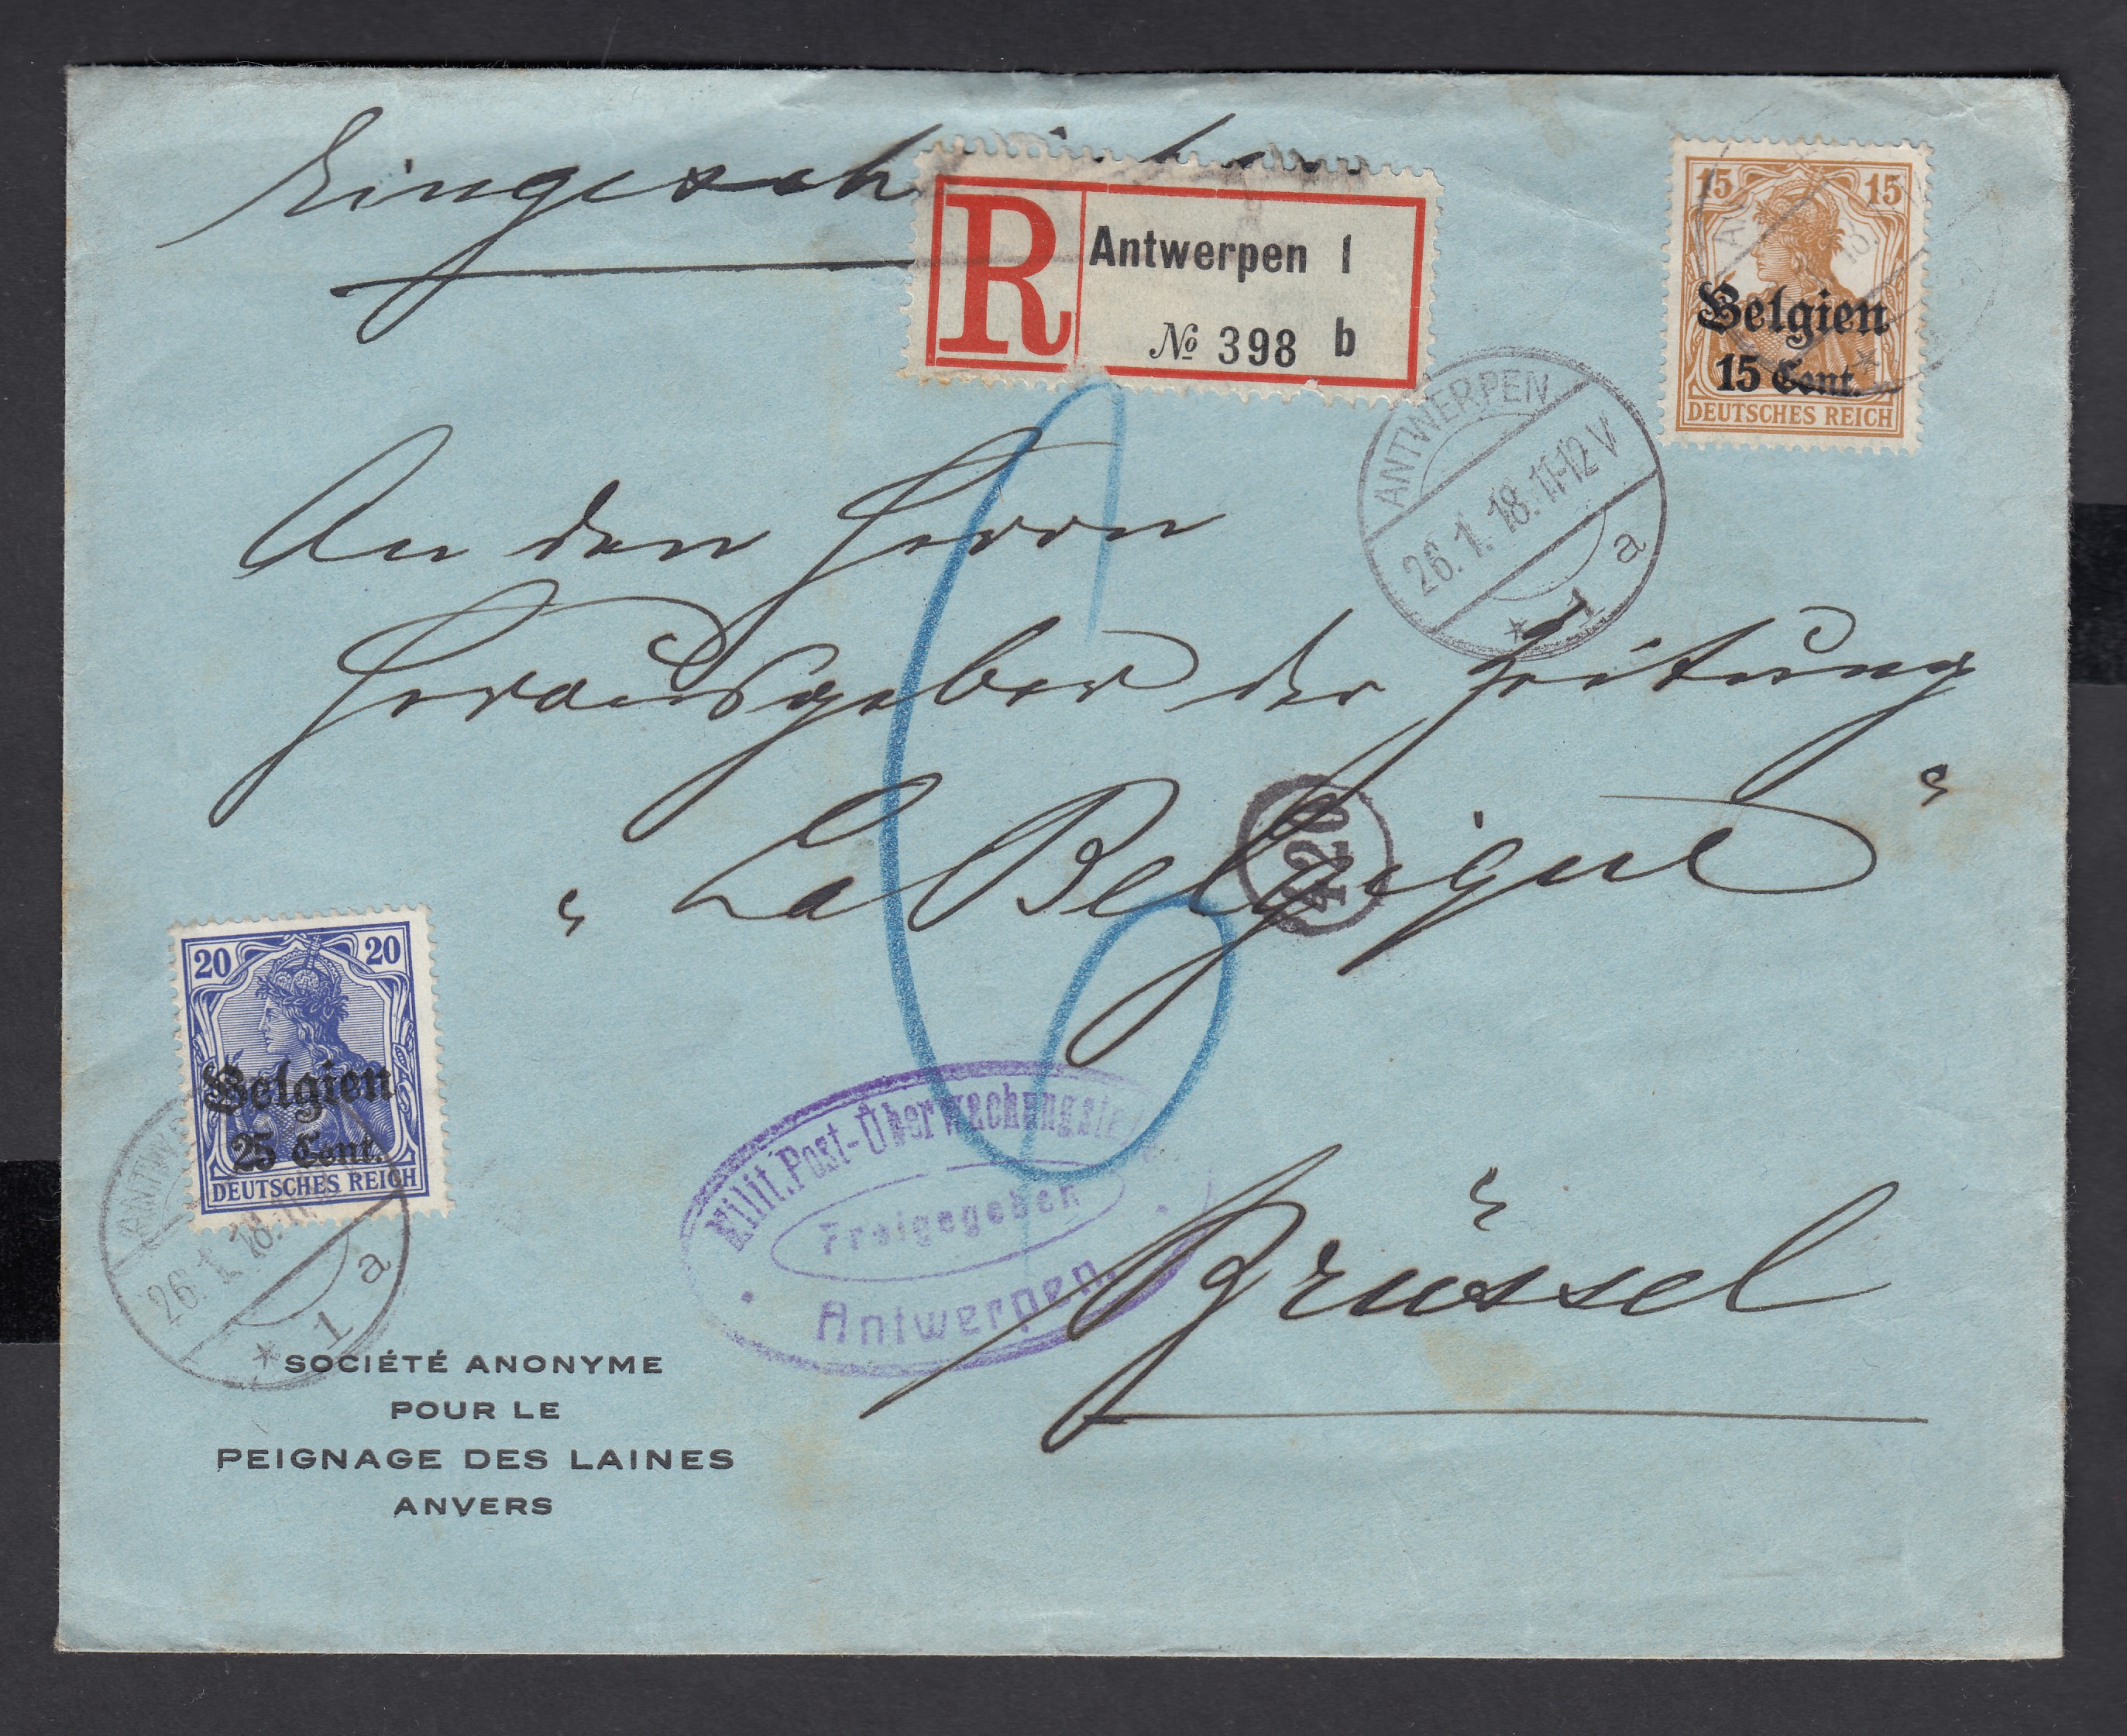 Eingeschrieben
R Antwerpen 1
№ 398 b
15 15
Belgien
15 Cent.
DEUTSCHES REICH
ANTWERPEN
26.1.18.11-12V
* 1 a
An den Herrn
Herausgeber der Zeitung
„La Belgique“
420
Brüssel
20 20
Belgien
25 Cent.
DEUTSCHES REICH
ANTWERPEN
26.1.18.11
* 1 a
Milit. Post-Überwachungsstelle
Freigegeben
Antwerpen.
SOCIÉTÉ ANONYME
POUR LE
PEIGNAGE DES LAINES
ANVERS